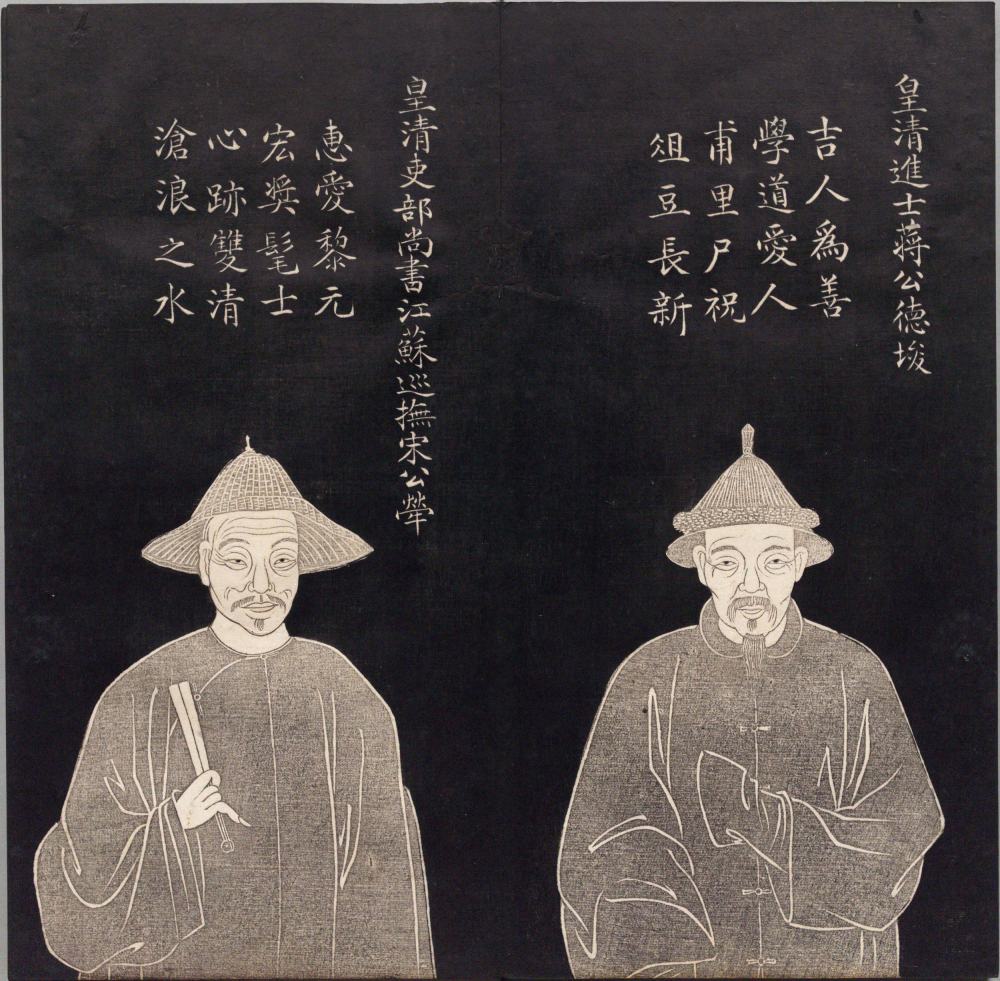 皇清進士蔣公德埈
吉人爲善
學道愛人
甫里尸祝
俎豆長新
皇清吏部尚書江蘇巡撫宋公犖
惠愛黎元
宏奬髦士
心跡雙清
滄浪之水